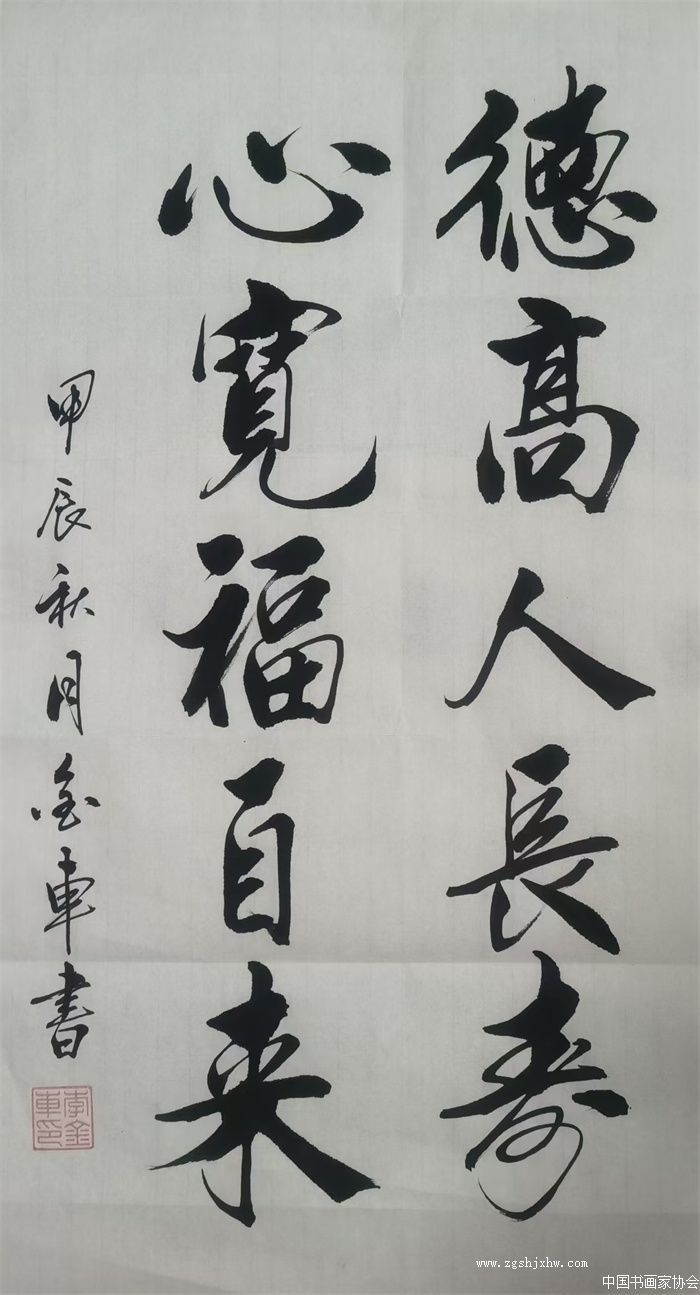 德高人長寿
心寬福自来
甲辰秋月金車書
李金車印
www.zgshjxhw.com
中国书画家协会